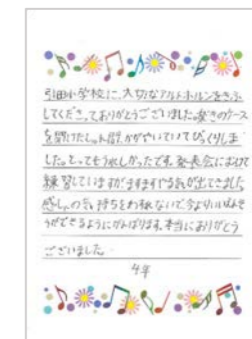 引田小学校に、大切なアルトホルンをきふ
してくださってありがとうございました。楽きのケース
を開けたしゅん間、かがやいていてびっくりしま
した。とってもうれしかったです。発表会にむけて
練習していますがますますやる気が出てきました
感しゃの気持ちをわすれないで今よりいいえんそ
うができるようにがんばります。本当にありがとう
ございました。
4年